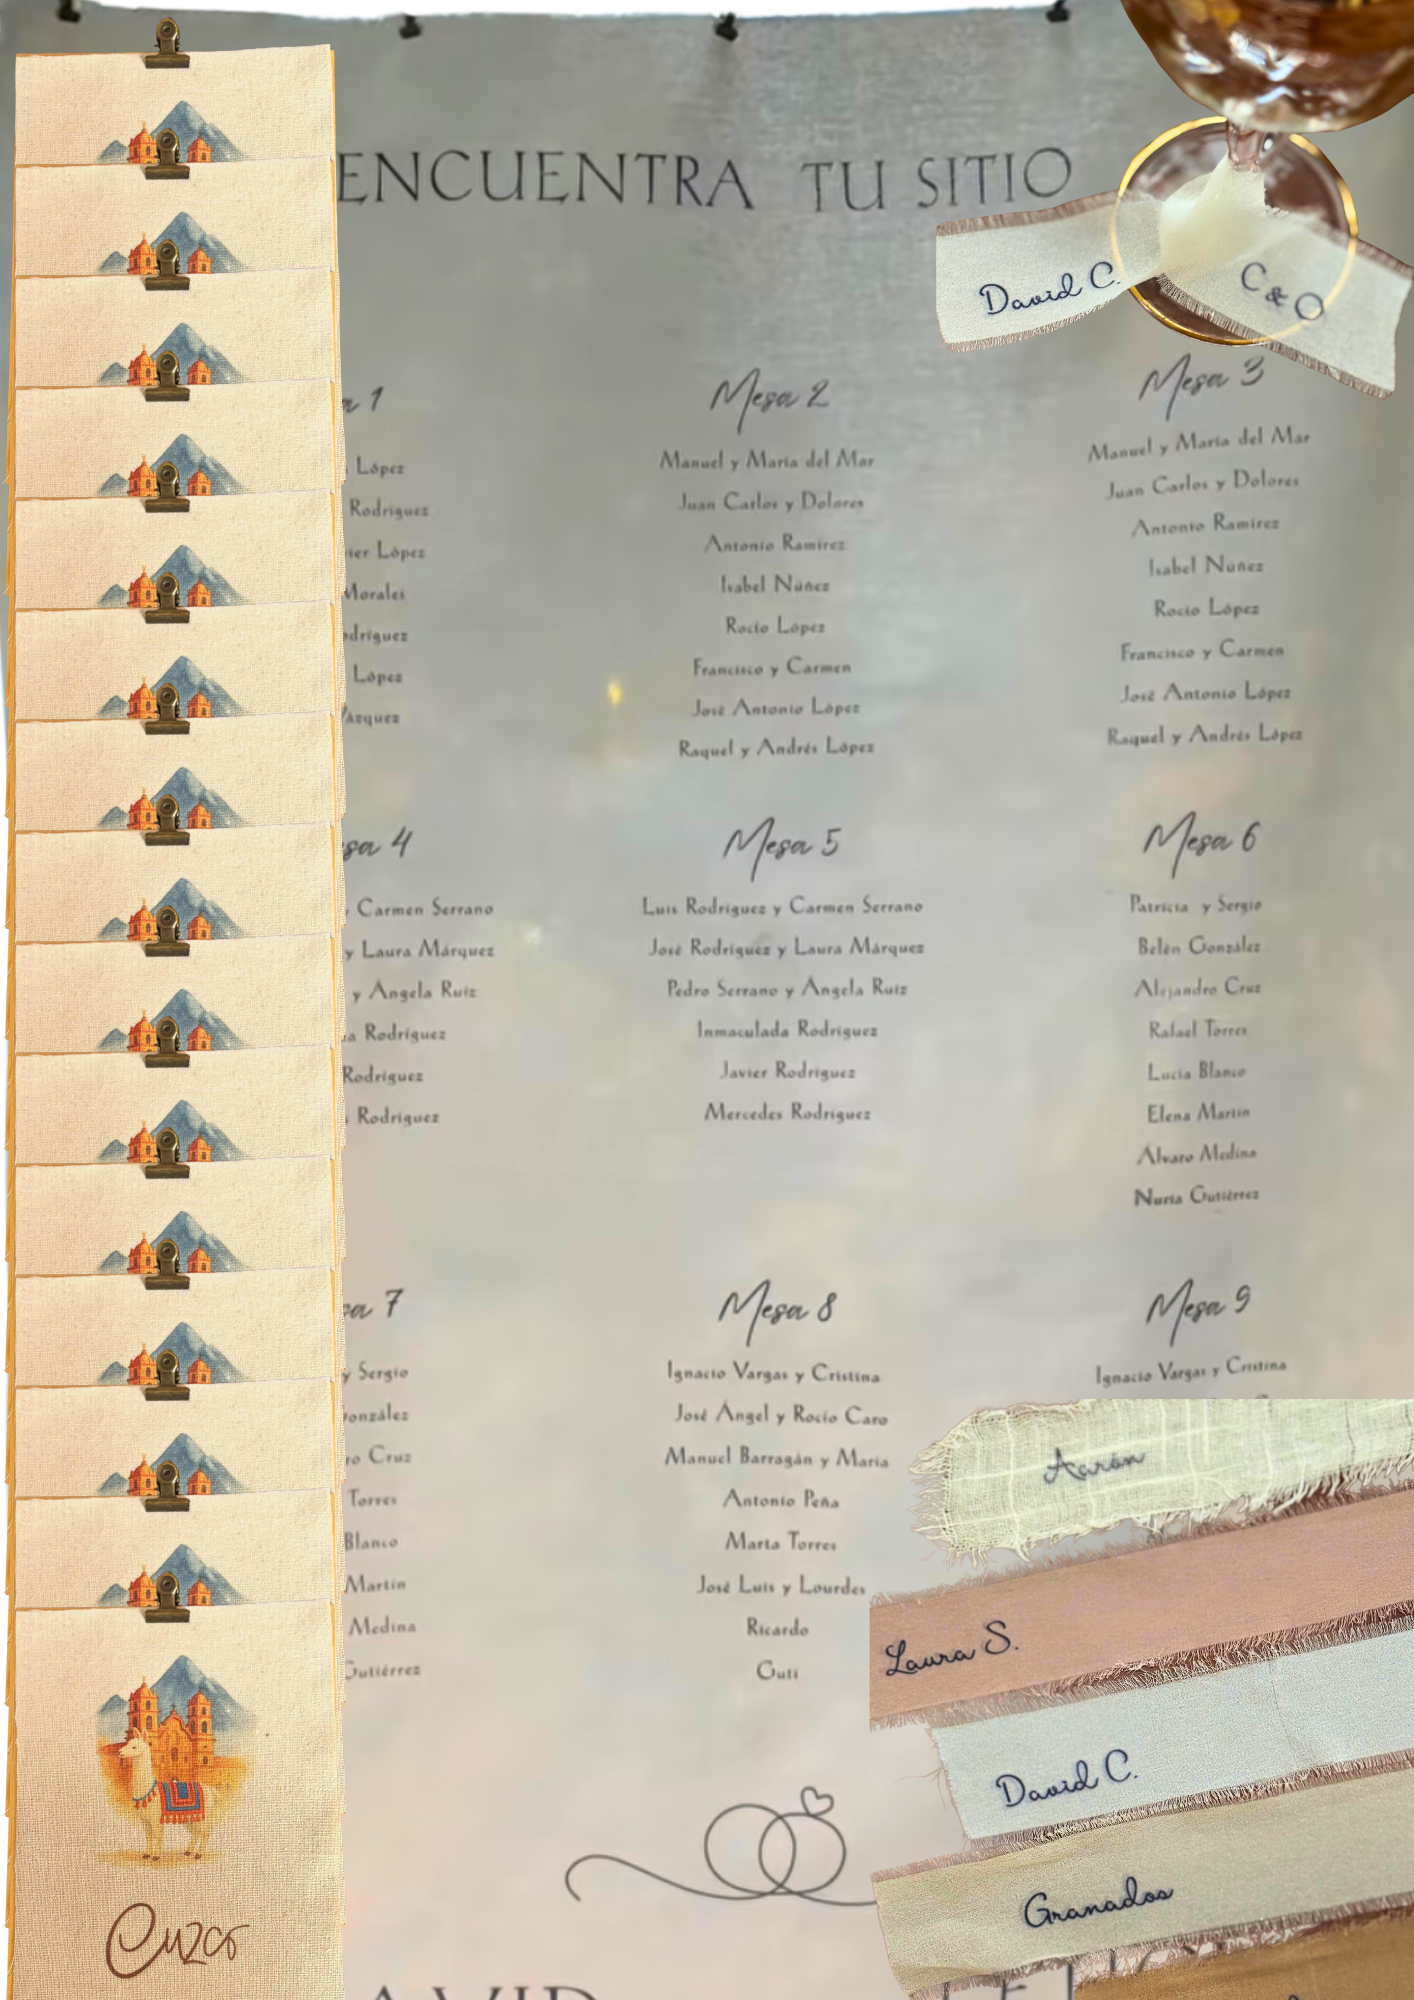 ENCUENTRA TU SITIO
David C.
C & O
1
Mesa 2
Mesa 3
López
Rodríguez
López
Morales
López
Manuel y María del Mar
Juan Carlos y Dolores
Antonio Ramírez
Isabel Núñez
Rocío López
Francisco y Carmen
José Antonio López
Raquel y Andrés López
Manuel y María del Mar
Juan Carlos y Dolores
Antonio Ramírez
Isabel Núñez
Rocío López
Francisco y Carmen
José Antonio López
Raquel y Andrés López
4
Mesa 5
Mesa 6
Carmen Serrano
y Laura Márquez
y Ángela Ruiz
Rodríguez
Rodríguez
Rodríguez
Luis Rodríguez y Carmen Serrano
José Rodríguez y Laura Márquez
Pedro Serrano y Ángela Ruiz
Inmaculada Rodríguez
Javier Rodríguez
Mercedes Rodríguez
Patricia y Sergio
Belén González
Alejandro Cruz
Rafael Torres
Lucía Blanco
Elena Martín
Álvaro Medina
Nuria Gutiérrez
7
Mesa 8
Mesa 9
y Sergio
Cruz
Torres
Blanco
Martín
Medina
Ignacio Vargas y Cristina
José Ángel y Rocío Caro
Manuel Barragán y María
Antonio Peña
Marta Torres
José Luis y Lourdes
Ricardo
Guti
Ignacio Vargas y Cristina
Aarón
Laura S.
David C.
Granados
Cuzco